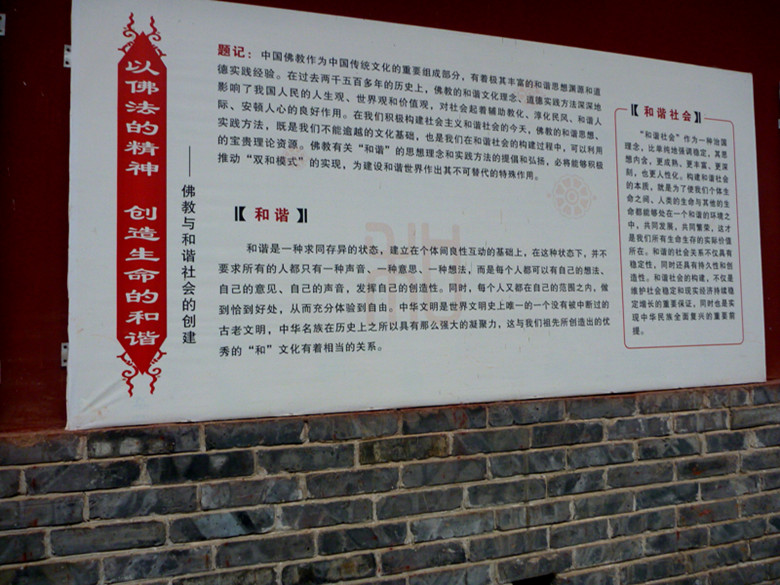 以佛法的精神 创造生命的和谐
——佛教与和谐社会的创建
题记：中国佛教作为中国传统文化的重要组成部分，有着极其丰富的和谐思想渊源和道
德实践经验。在过去两千五百多年的历史上，佛教的和谐文化理念、道德实践方法深深地
影响了我国人民的人生观、世界观和价值观，对社会起着辅助教化、淳化民风、和谐人
际、安顿人心的良好作用。在我们积极构建社会主义和谐社会的今天，佛教的和谐思想、
实践方法，既是我们不能逾越的文化基础，也是我们在和谐社会的构建过程中，可以利用
的宝贵理论资源。佛教有关“和谐”的思想理念和实践方法的提倡和弘扬，必将能够积极
推动“双和模式”的实现，为建设和谐世界作出其不可替代的特殊作用。
【和谐】
和谐是一种求同存异的状态，建立在个体间良性互动的基础上，在这种状态下，并不
要求所有的人都只有一种声音、一种意思、一种想法，而是每个人都可以有自己的想法、
自己的意见、自己的声音，发挥自己的创造性。同时，每个人又都在自己的范围之内，做
到恰到好处，从而充分体验到自由。中华文明是世界文明史上唯一的一个没有被中断过的
古老文明，中华名族在历史上之所以具有那么强大的凝聚力，这与我们祖先所创造出的优
秀的“和”文化有着相当的关系。
【和谐社会】
“和谐社会”作为一种治国
理念，比单纯地强调稳定，其思
想内含，更成熟、更丰富、更深
刻，也更人性化。构建和谐社会
的本质，就是为了使我们个体生
命之间、人类的生命与其他的生
命都能够处在一个和谐的环境之
中，共同发展，共同繁荣，这才
是我们所有生命生存的实际价值
所在。和谐的社会关系不仅具有
稳定性，同时还具有持久性和创
造性。和谐社会的构建，不仅是
维护社会稳定和现实经济持续
稳定增长的重要保证，同时也是实
现中华民族全面复兴的重要前
提。